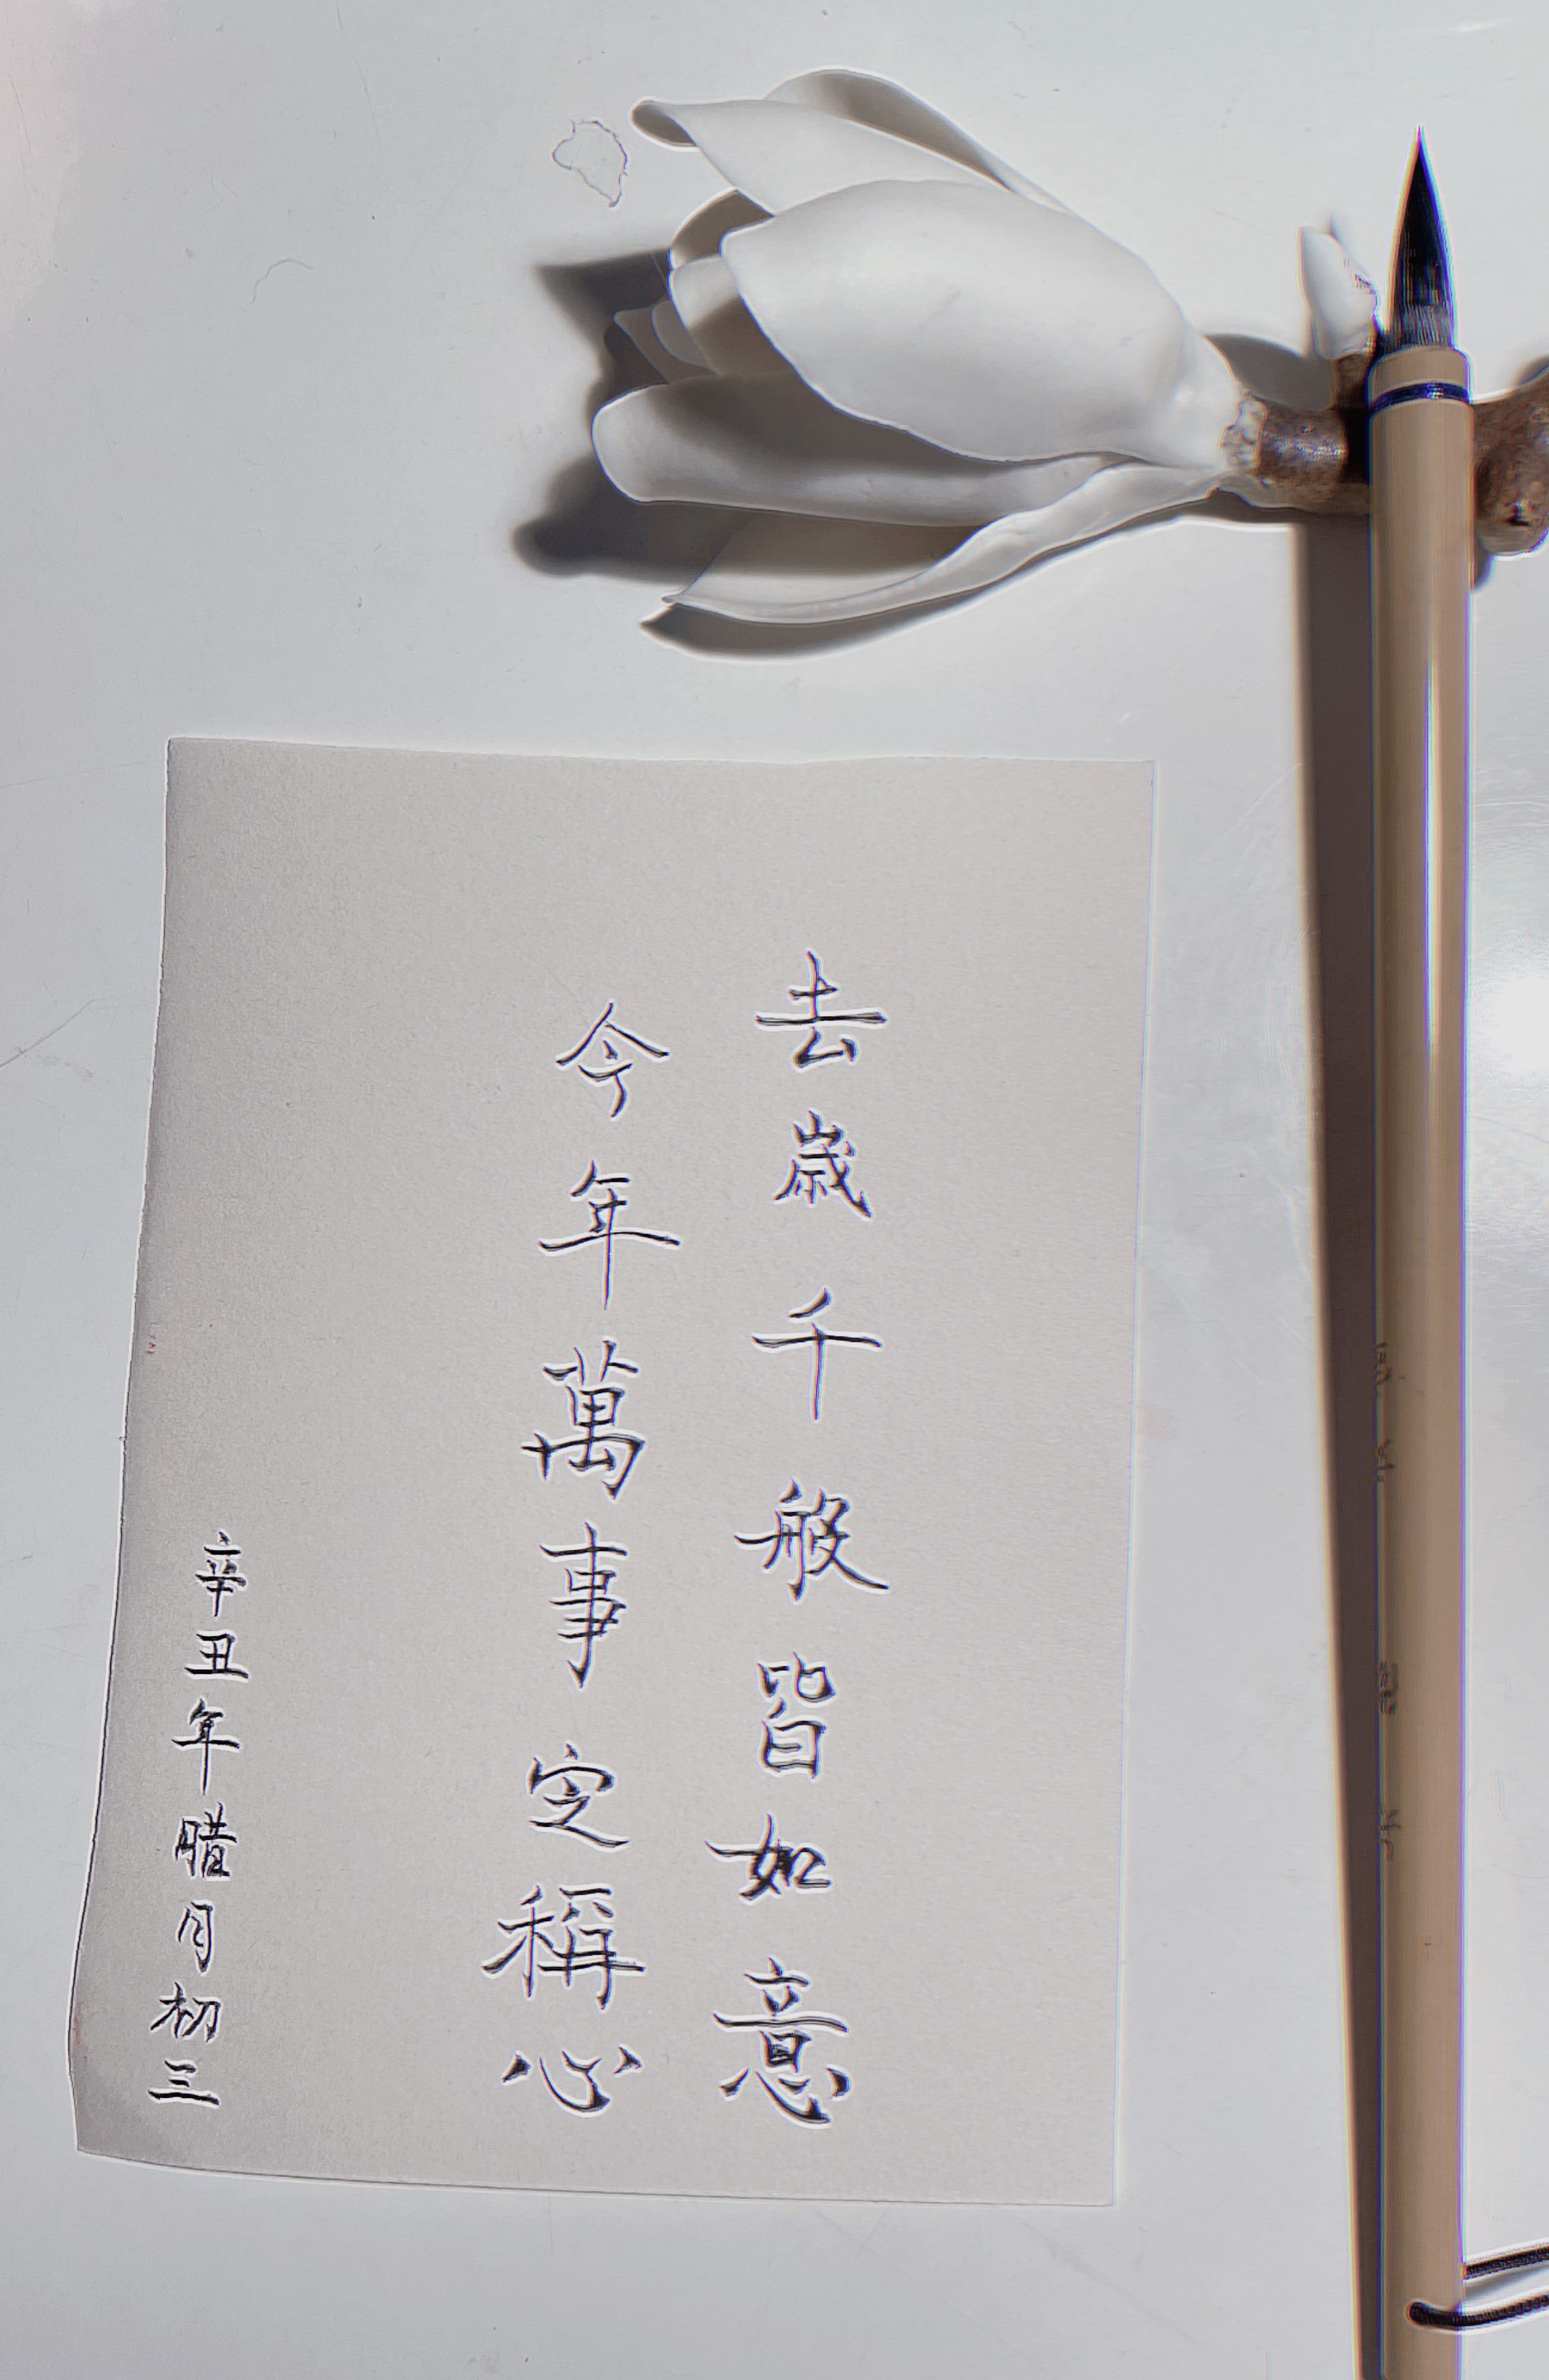 去歲千般皆如意
今年萬事定稱心
辛丑年腊月初三